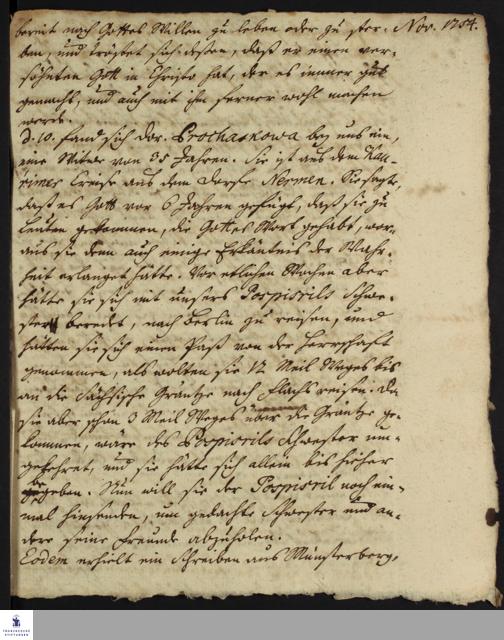 bereit nach Gottes Willen zu leben oder zu ster- Nov. 1754.
ben, und tröstet sich dessen, daß er einen ver-
söhnten Gott in Christo hat, der es immer gut
gemacht, und auch mit ihm ferner wohl machen
werde.
d. 10. fand sich Dor. Prochaskowa bey uns ein,
eine Witwe von 35 Jahren. Sie ist aus dem Kau-
rimer Creise aus dem Dorfe Nermen. Sie sagte,
daß es Gott vor 6 Jahren gefügt, daß sie zu
Leuten gekommen, die Gottes Wort gehabt, wor-
aus sie denn auch einige Erkäntnis der Wahr-
heit erlanget hätte. Vor etlichen Wochen aber
hätte sie sich mit unsers Pospisrils Schwe-
ster beredet, nach Berlin zu reisen, und
hätten sie sich einen Paß von der Herrschaft
genommen, als wolten sie 12 Meil Weges bis
an die Sächsische Gräntze nach Flachs reisen. Da
sie aber schon 3 Meil Weges über die Gräntze ge-
kommen, wäre des Pospisrils Schwester um-
gekehret, und sie hätte sich allein bis hieher
begeben. Nun will sie der Pospisril noch ein-
mal hinsenden, um gedachte Schwester und an-
dere seine Freunde abzuholen.
Eodem erhielt ein Schreiben aus Münsterberg,
FRANCKESCHE
STIFTUNGEN